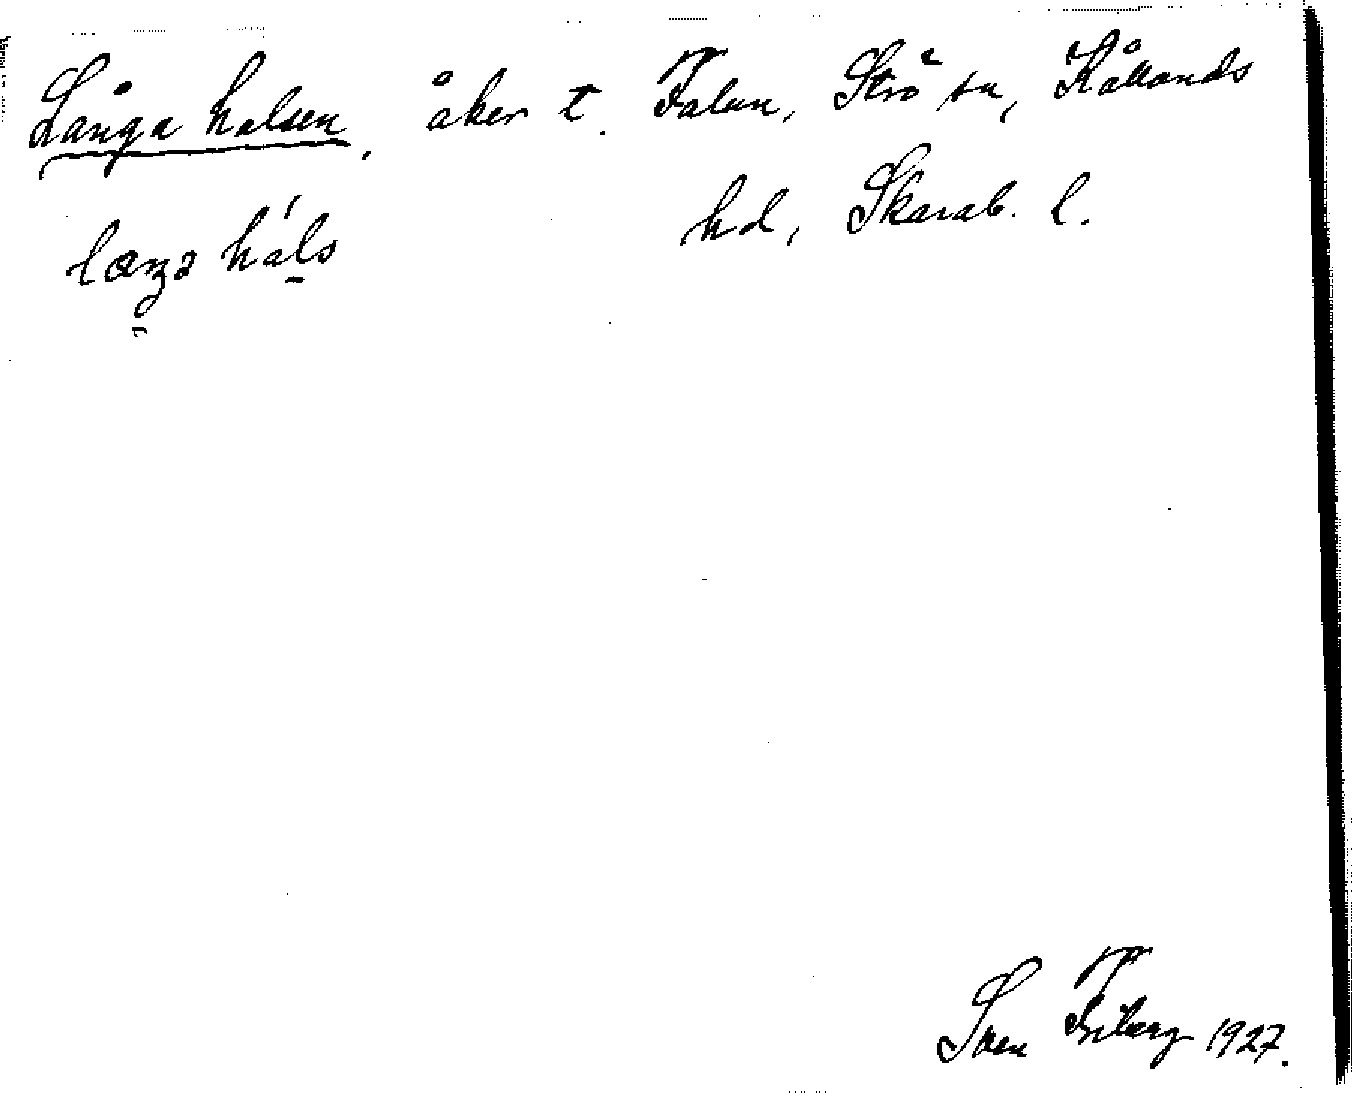 Långa halsen, åker t. Falun, Strö sn, Kållands
hd, Skarab. l.
Sven Friberg 1927.